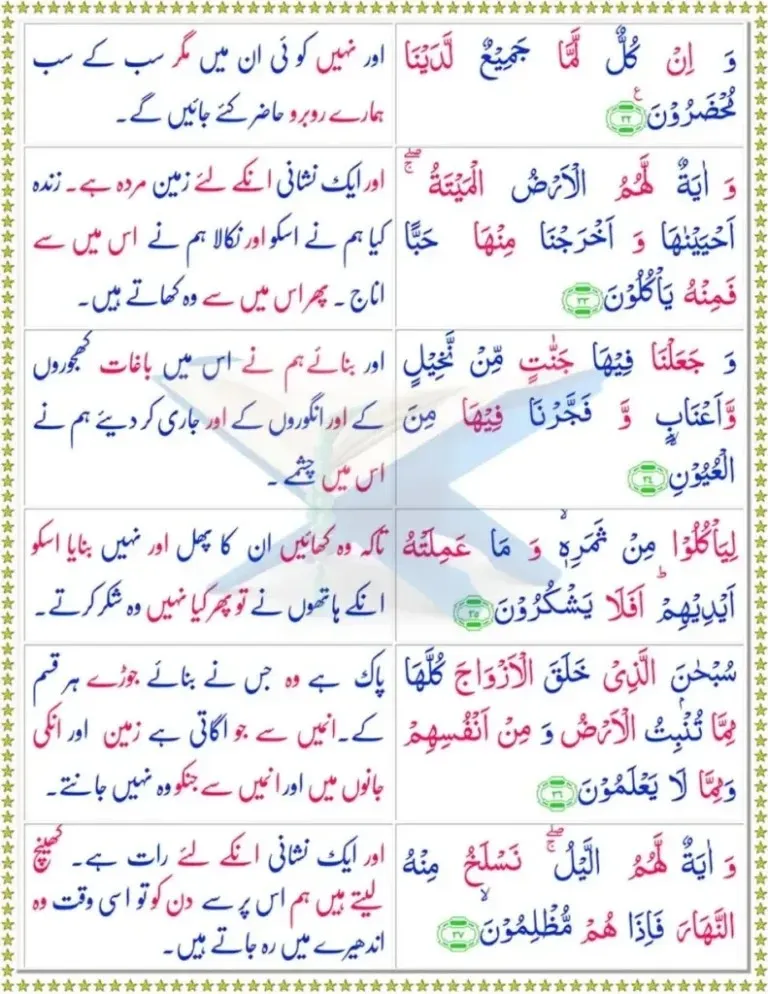 وَ اِنْ كُلٌّ لَّمَّا جَمِیْعٌ لَّدَیْنَا
مُحْضَرُوْنَ ۧ﴿۳۲﴾
اور نہیں کوئی ان میں مگر سب کے سب
ہمارے روبرو حاضر کئے جائیں گے۔
وَ اٰیَةٌ لَّهُمُ الْاَرْضُ الْمَیْتَةُ ۖۚ
اَحْیَیْنٰهَا وَ اَخْرَجْنَا مِنْهَا حَبًّا
فَمِنْهُ یَاْكُلُوْنَ ﴿۳۳﴾
اور ایک نشانی انکے لئے زمین مردہ ہے۔ زندہ
کیا ہم نے اسکو اور نکالا ہم نے اس میں سے
اناج ۔ پھر اس میں سے وہ کھاتے ہیں۔
وَ جَعَلْنَا فِیْهَا جَنّٰتٍ مِّنْ نَّخِیْلٍ
وَّاَعْنَابٍ وَّ فَجَّرْنَا فِیْهَا مِنَ
الْعُیُوْنِ ﴿۳۴﴾
اور بنائے ہم نے اس میں باغات کھجوروں
کے اور انگوروں کے اور جاری کر دیئے ہم نے
اس میں چشمے ۔
لِیَاْكُلُوْا مِنْ ثَمَرِهٖ ۙ وَ مَا عَمِلَتْهُ
اَیْدِیْهِمْ ؕ اَفَلَا یَشْكُرُوْنَ ﴿۳۵﴾
تاکہ وہ کھائیں ان کا پھل اور نہیں بنایا اسکو
انکے ہاتھوں نے تو پھر کیا نہیں وہ شکر کرتے۔
سُبْحٰنَ الَّذِیْ خَلَقَ الْاَزْوَاجَ كُلَّهَا
مِمَّا تُنْۢبِتُ الْاَرْضُ وَ مِنْ اَنْفُسِهِمْ
وَمِمَّا لَا یَعْلَمُوْنَ ﴿۳۶﴾
پاک ہے وہ جس نے بنائے جوڑے ہر قسم
کے۔انمیں سے جو اگاتی ہے زمین اور انکی
جانوں میں اور انمیں سے جنکو وہ نہیں جانتے۔
وَ اٰیَةٌ لَّهُمُ الَّیْلُ ۖۚ نَسْلَخُ مِنْهُ
النَّهَارَ فَاِذَا هُمْ مُّظْلِمُوْنَ ۙ﴿۳۷﴾
اور ایک نشانی انکے لئے رات ہے۔ کھینچ
لیتے ہیں ہم اس پر سے دن کو تو اسی وقت وہ
اندھیرے میں رہ جاتے ہیں۔